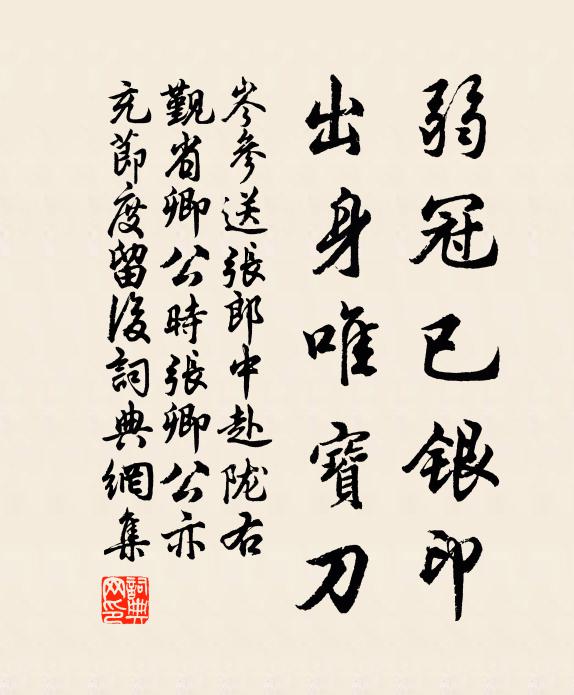 弱冠已銀印
出身唯寶刀
岑參送張郎中赴陇右
觐省卿公時張卿公亦
充節度留後詞典網集